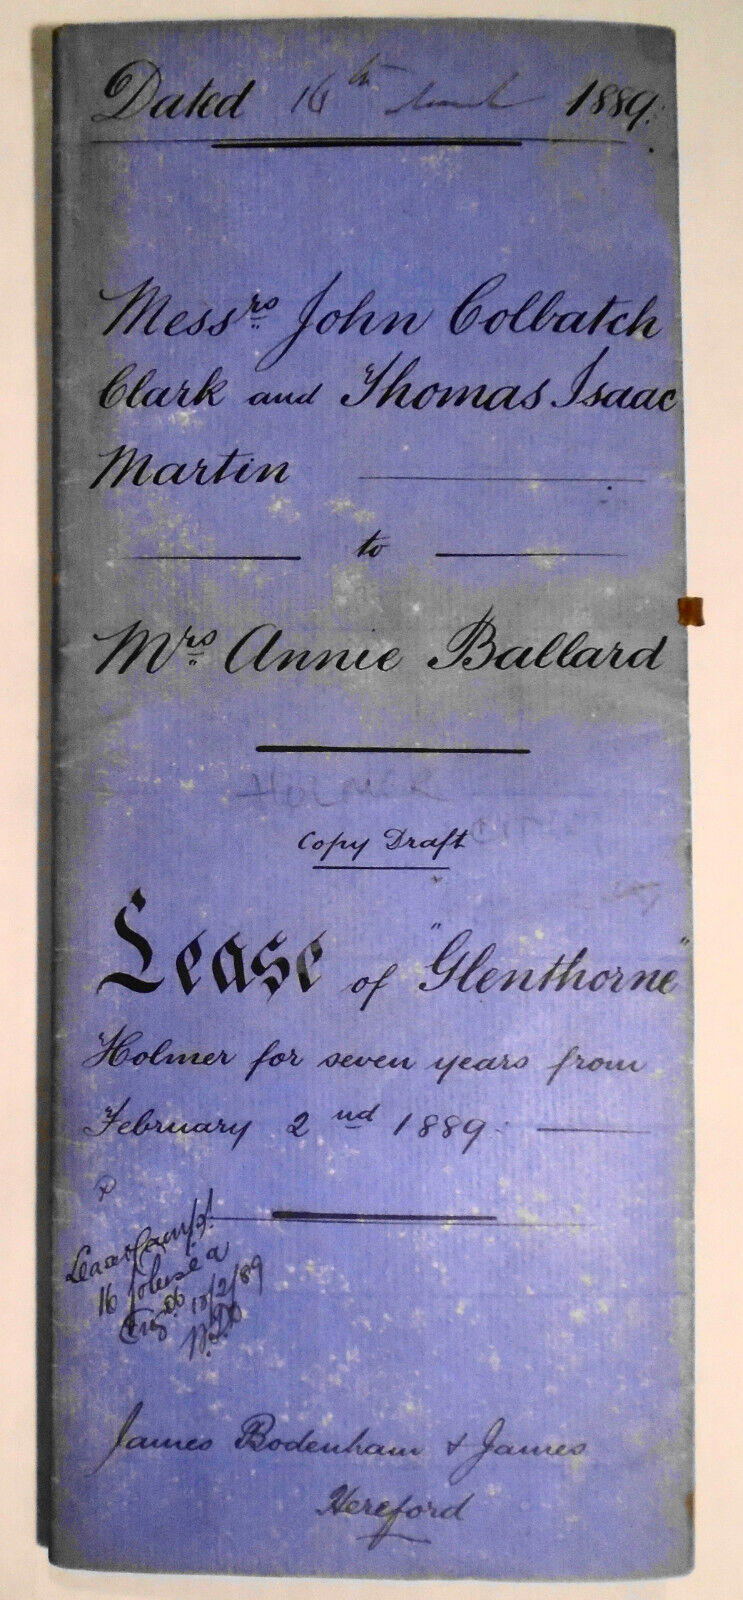 Dated 16th March 1889.
Messrs John Colbatch
Clark and Thomas Isaac
Martin
to
Mrs Annie Ballard
HOLMER
Copy Draft
Lease of "Glenthorne"
Holmer for seven years from
February 2nd 1889
16
18/2/89
James Bodenham & James
Hereford